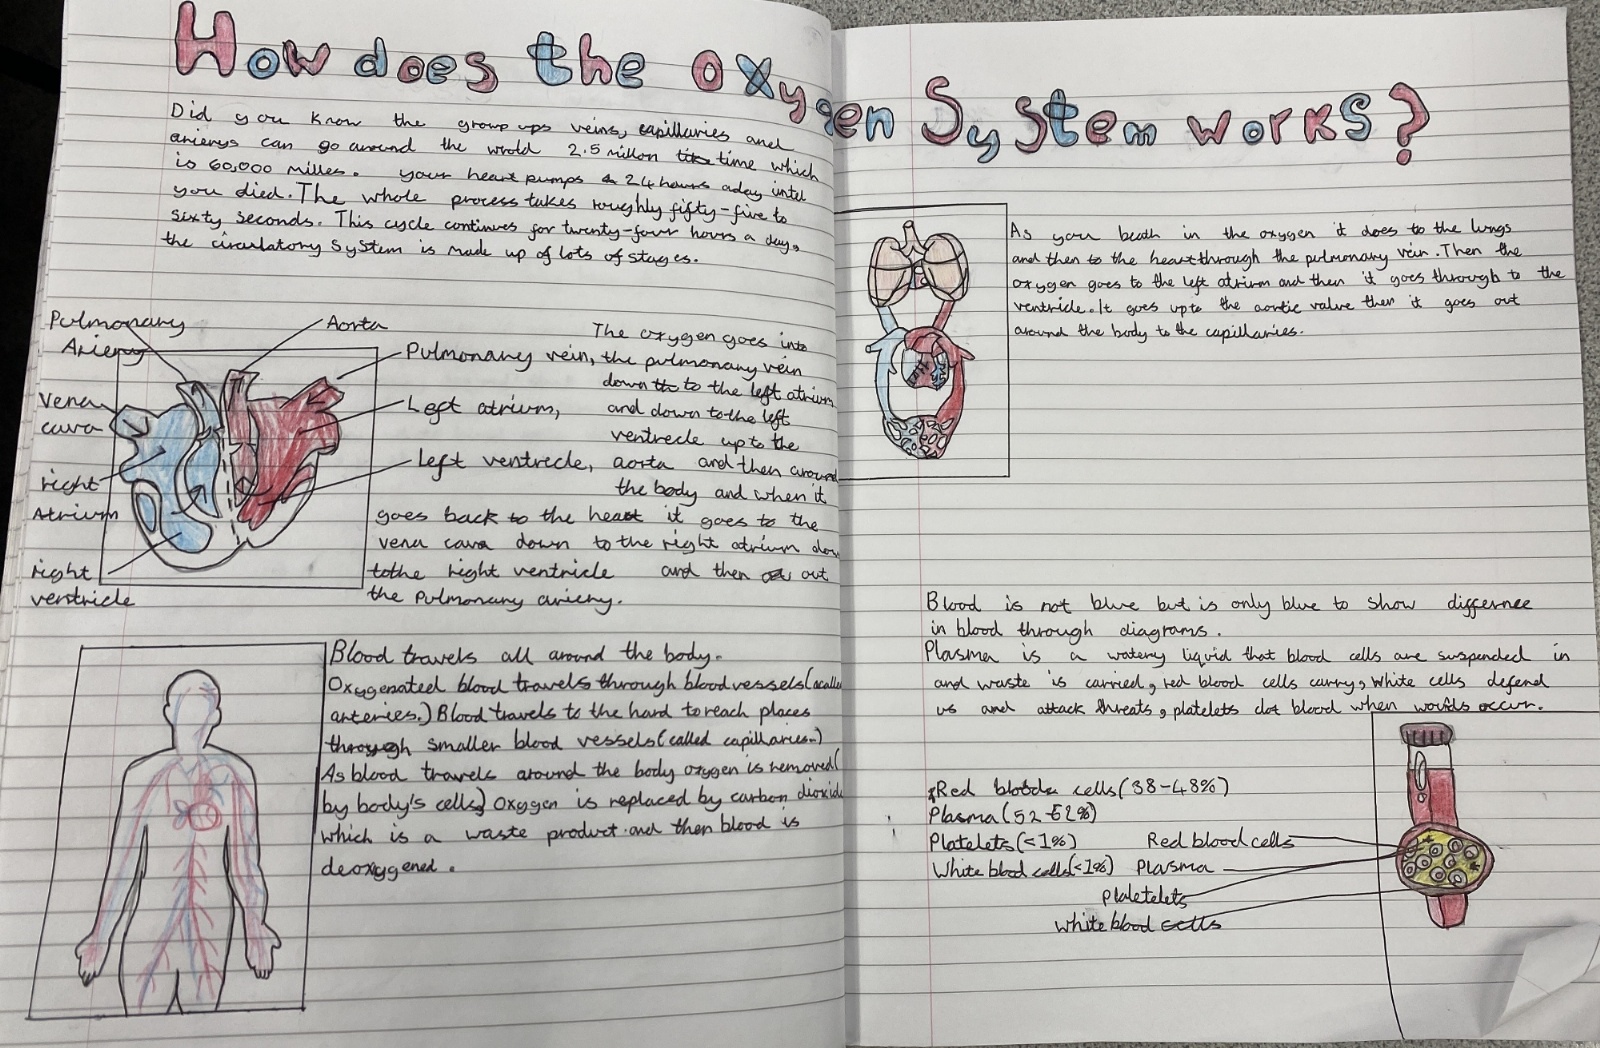 How does the oxygen System works?
Did you know the group ups veins, capillaries and
arierys can go around the world 2.5 millon time which
is 60,000 milles. your heart pumps 24 hours aday intel
you died. The whole process takes roughly fifty-five to
sixty seconds. This cycle continues for twenty-four hours a day,
the circulatory system is made up of lots of stages.
Pulmonary
Ariery
Aorta
Pulmonary vein,
vena
cava
Left atrium,
Left ventricle,
right
Atrium
right
ventricle
The oxygen goes into
the pulmonary vein
down to the left atrium
and down to the left
ventrecle up to the
aorta and then around
the body and when it
goes back to the heart it goes to the
vena cava down to the right atrium dow
to the right ventricle and then out
the pulmonary ariery.
Blood travels all around the body.
Oxygenated blood travels through blood vessels(
arteries.) Blood travels to the hard to reach places
through smaller blood vessels(called capillaries.)
As blood travels around the body oxygen is removed(
by body's cells) oxygen is replaced by carbon dioxide
which is a waste product and then blood is
deoxygened.
As you beath in the oxygen it does to the lungs
and then to the heart through the pulmonary vein. Then the
oxygen goes to the left atrium and then it goes through to the
ventricle. It goes up to the aortic valve then it goes out
around the body to the capillaries.
Blood is not blue but is only blue to show differnee
in blood through diagrams.
Plasma is a watery liquid that blood cells are suspended in
and waste is carried, red blood cells carry, white cells defend
us and attack threats, platelets clot blood when occur.
Red blood cells(38-48%)
Plasma(52-62%)
Platelets(<1%)
White blood cells(<1%)
Red blood cells
Plasma
plateletes
white blood cells